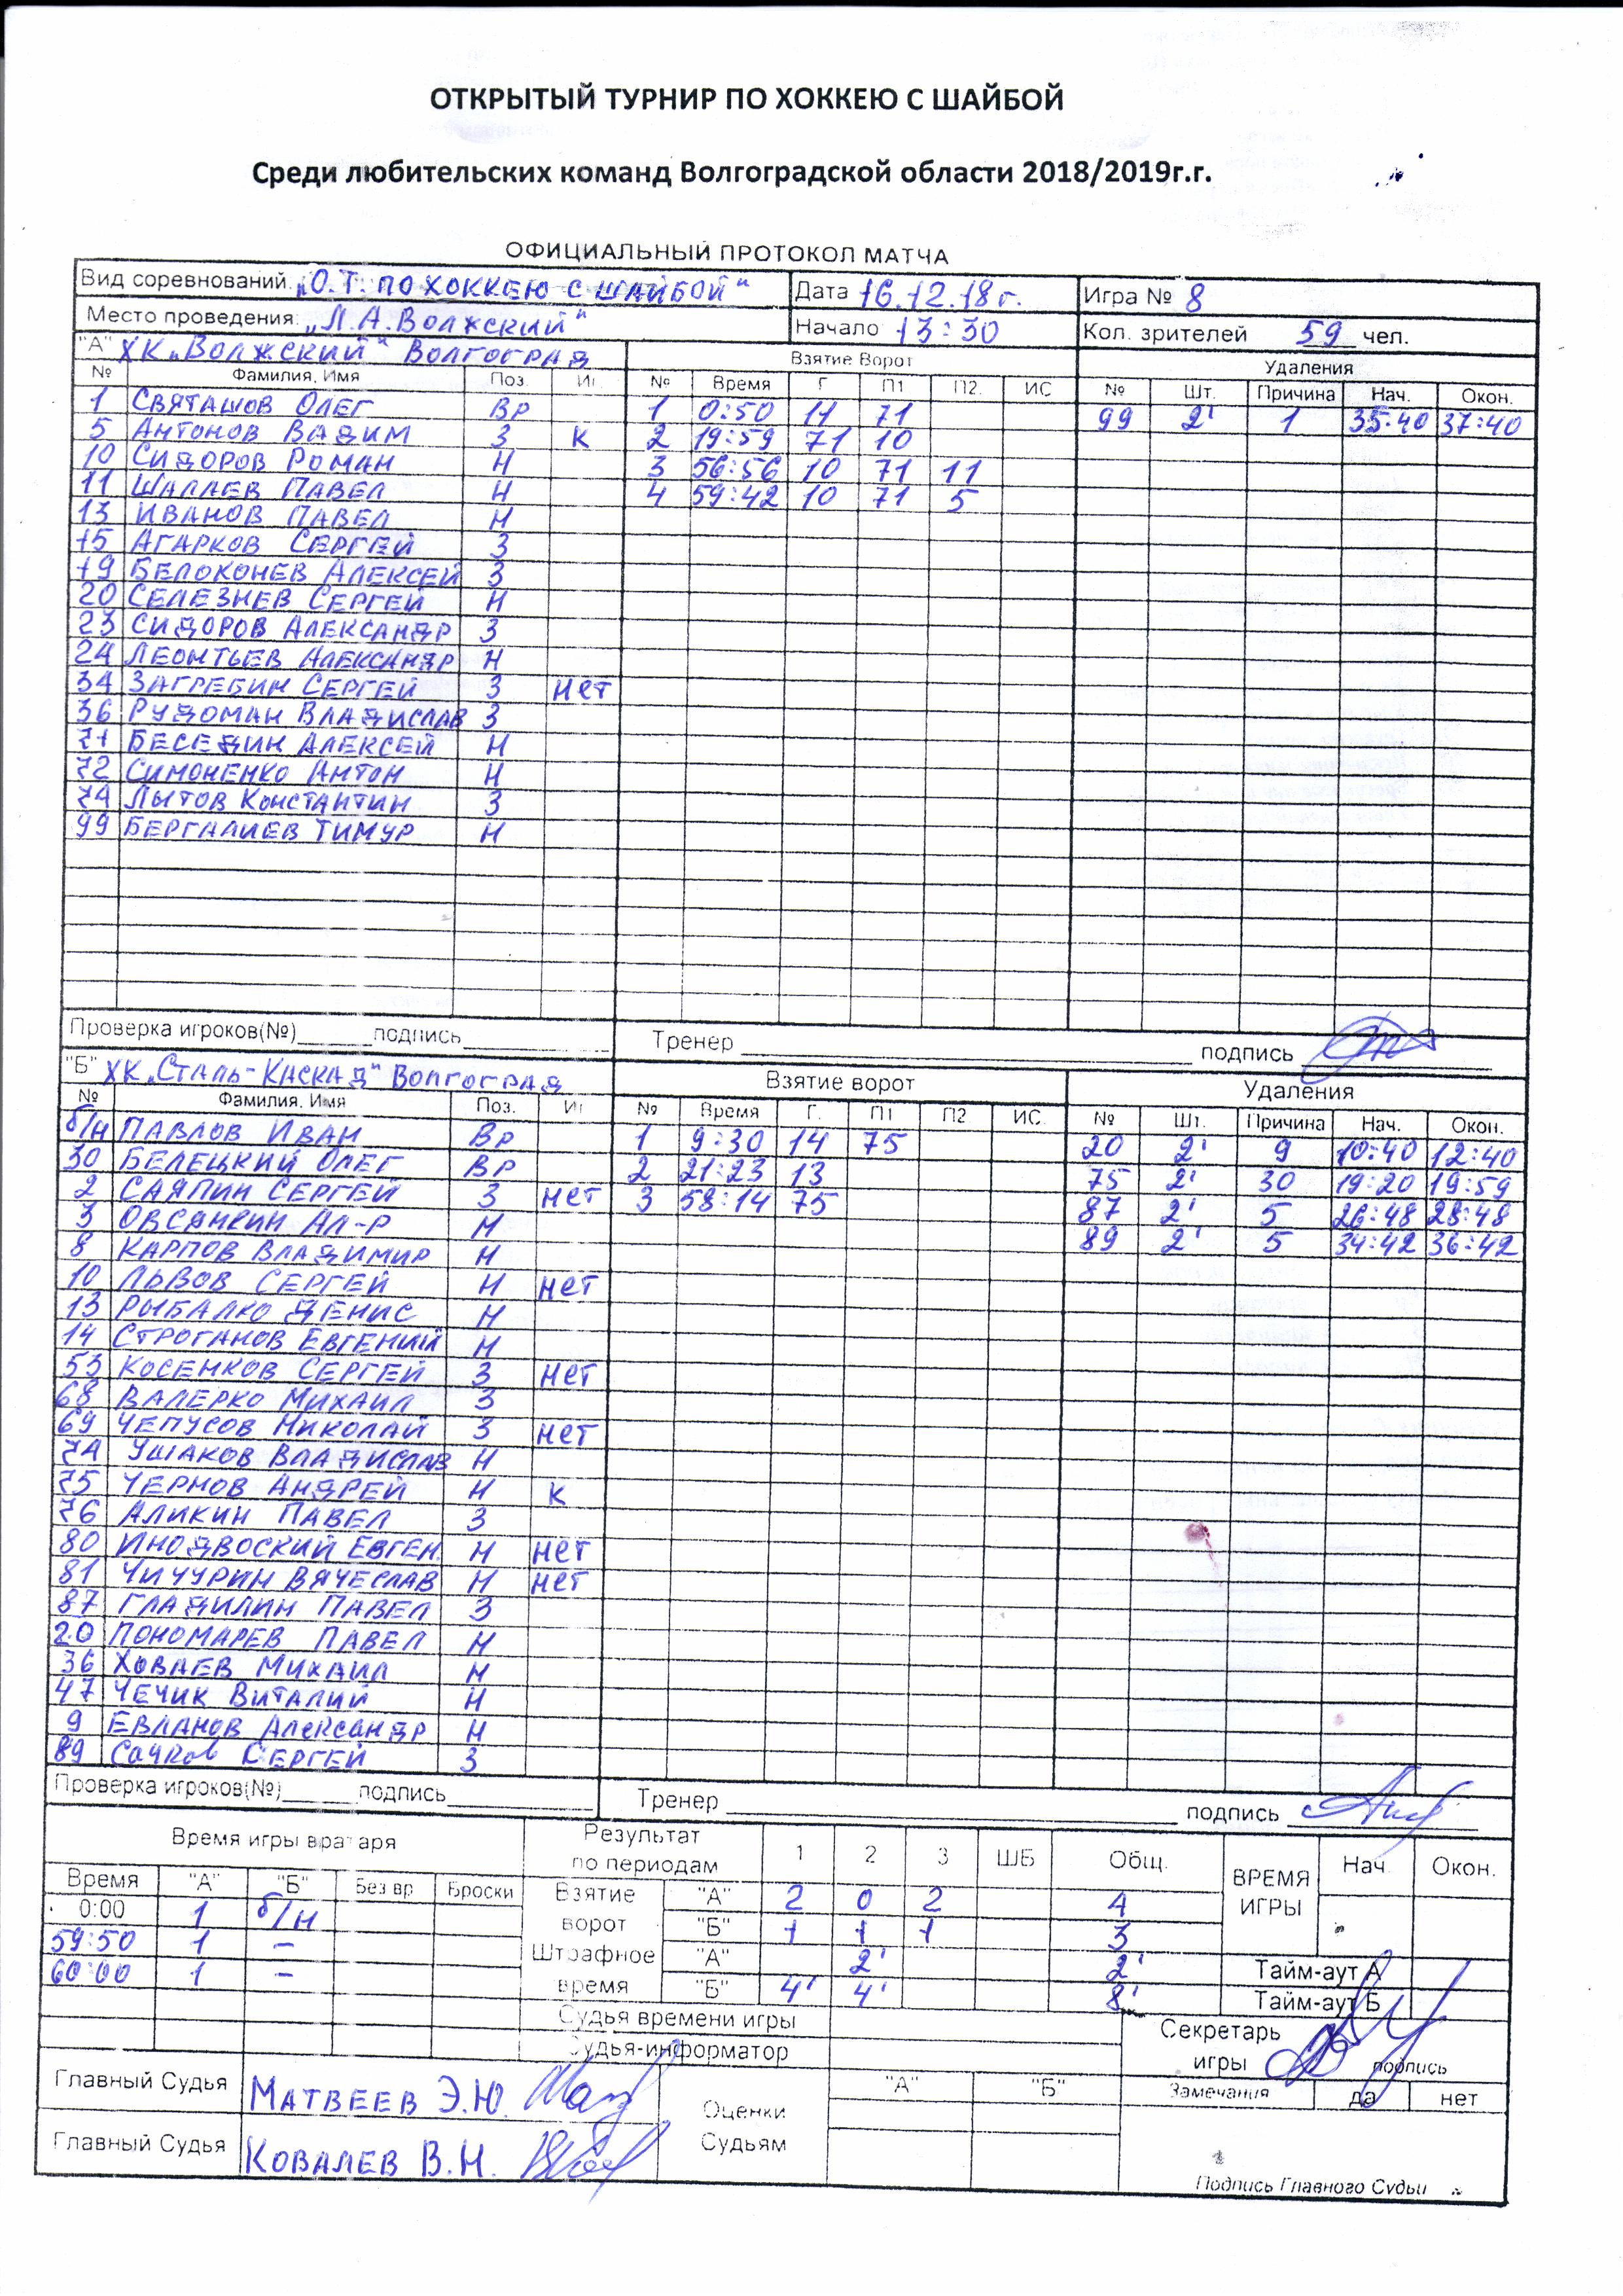 ОТКРЫТЫЙ ТУРНИР ПО ХОККЕЮ С ШАЙБОЙ
Среди любительских команд Волгоградской области 2018/2019г.г.
ОФИЦИАЛЬНЫЙ ПРОТОКОЛ МАТЧА
Вид соревнований: „О.Т. ПО ХОККЕЮ С ШАЙБОЙ" Дата 16.12.18г. Игра № 8
Место проведения: „Л.А. ВОЛЖСКИЙ" Начало 13:30 Кол. зрителей 59 чел.
"А" ХК „ВОЛЖСКИЙ" ВОЛГОГРАД Взятие Ворот Удаления
№ Фамилия, Имя Поз. Иг. № Время Г. П1 П2. ИС № Шт. Причина Нач. Окон.
1 СВЯТАШОВ ОЛЕГ ВР 1 0:50 11 71 99 2' 1 35:40 37:40
5 АНТОНОВ ВАДИМ З К 2 19:59 71 10
10 СИДОРОВ РОМАН Н 3 56:56 10 71 11
11 ШАЛАЕВ ПАВЕЛ Н 4 59:42 10 71 5
13 ИВАНОВ ПАВЕЛ Н
15 АГАРКОВ СЕРГЕЙ З
19 БЕЛОКОНЕВ АЛЕКСЕЙ З
20 СЕЛЕЗНЕВ СЕРГЕЙ Н
23 СИДОРОВ АЛЕКСАНДР З
24 ЛЕОНТЬЕВ АЛЕКСАНДР Н
34 ЗАГРЕБИН СЕРГЕЙ З нет
36 РУДОМАН ВЛАДИСЛАВ З
71 БЕСЕДИН АЛЕКСЕЙ Н
72 СИМОНЕНКО АНТОН Н
74 ЛЫТОВ КОНСТАНТИН З
99 БЕРГАЛИЕВ ТИМУР Н
Проверка игроков(№)______подпись__________ Тренер __________ подпись __________
"Б" ХК „СТАЛЬ-КАСКАД" ВОЛГОГРАД Взятие ворот Удаления
№ Фамилия, Имя Поз. Иг № Время Г. П1 П2 ИС. № Шт. Причина Нач. Окон.
б/н ПАВЛОВ ИВАН Вр 1 9:30 14 75 20 2' 9 10:40 12:40
30 БЕЛЕЦКИЙ ОЛЕГ ВР 2 21:23 13 75 2' 30 19:20 19:59
2 САЯПИН СЕРГЕЙ З нет 3 58:14 75 87 2' 5 26:48 28:48
3 ОВСЯНКИН АЛ-Р Н 89 2' 5 34:42 36:42
8 КАРПОВ ВЛАДИМИР Н
10 ЛЬВОВ СЕРГЕЙ Н нет
13 РЫБАЛКО ДЕНИС Н
14 СТРОГАНОВ ЕВГЕНИЙ Н
53 КОСЕНКОВ СЕРГЕЙ З нет
68 ВАЛЕРКО МИХАИЛ З
69 ЧЕПУСОВ НИКОЛАЙ З нет
74 УШАКОВ ВЛАДИСЛАВ Н
75 ЧЕРНОВ АНДРЕЙ Н К
76 АЛИКИН ПАВЕЛ З
80 ИНОДВОСКИЙ ЕВГЕН. Н нет
81 ЧИЧУРИН ВЯЧЕСЛАВ Н нет
87 ГЛАДИЛИН ПАВЕЛ З
20 ПОНОМАРЕВ ПАВЕЛ Н
36 ХОВАЕВ МИХАИЛ Н
47 ЧЕЧИК ВИТАЛИЙ Н
9 ЕВЛАНОВ АЛЕКСАНДР Н
89 САЧКОВ СЕРГЕЙ З
Проверка игроков(№)______подпись__________ Тренер __________ подпись __________
Время игры вратаря Результат по периодам 1 2 3 ШБ Общ. ВРЕМЯ ИГРЫ Нач. Окон.
Время "А" "Б" Без вр. Броски Взятие ворот "А" 2 0 2 4
0:00 1 б/н "Б" 1 1 1 3
59:50 1 – Штрафное время "А" 2' 2' Тайм-аут А
60:00 1 – "Б" 4' 4' 8' Тайм-аут Б
Судья времени игры Секретарь игры подпись
Судья-информатор
Главный Судья МАТВЕЕВ Э.Ю. Оценки Судьям "А" "Б" Замечания да нет
Главный Судья КОВАЛЕВ В.Н.
Подпись Главного Судьи